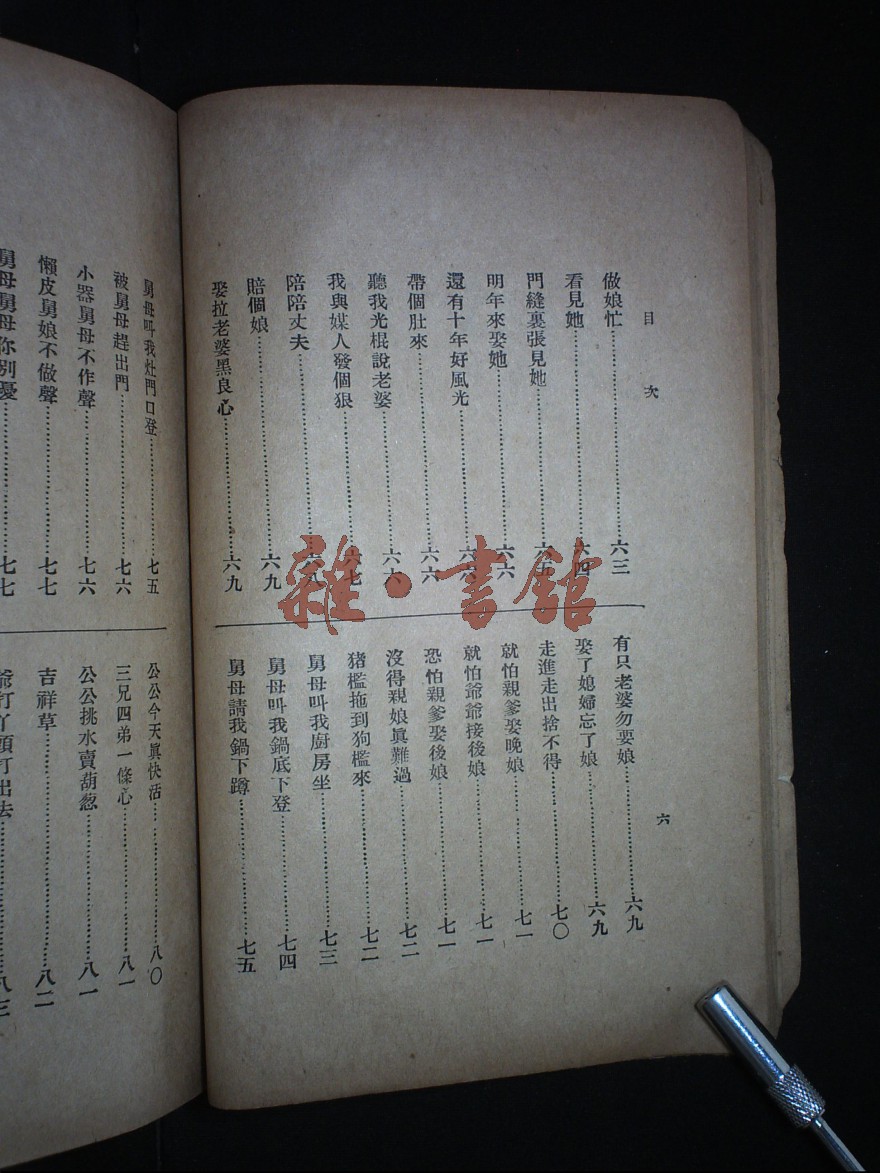 目次
做娘忙……六三
看見她……六四
門縫裏張見她……六五
明年來娶她……六六
還有十年好風光……六六
帶個肚來……六六
聽我光棍說老婆……六六
我與媒人發個狠……六七
陪陪丈夫……六八
賠個娘……六九
娶拉老婆黑良心……六九
有只老婆勿要娘……六九
娶了媳婦忘了娘……六九
走進走出捨不得……七〇
就怕親爹娶晚娘……七一
就怕爺爺接後娘……七一
恐怕親爹娶後娘……七一
沒得親娘眞難過……七二
猪檻拖到狗檻來……七二
舅母叫我廚房坐……七三
舅母叫我鍋底下登……七四
舅母請我鍋下蹲……七五
六
舅母叫我灶門口登……七五
被舅母趕出門……七六
小器舅母不作聲……七六
懶皮舅娘不做聲……七七
舅母舅母你別憂……七七
公公今天眞快活……八〇
三兄四弟一條心……八一
公公挑水賣葫葱……八一
吉祥草……八二
爺打丫頭打出去……八三
雜·書館